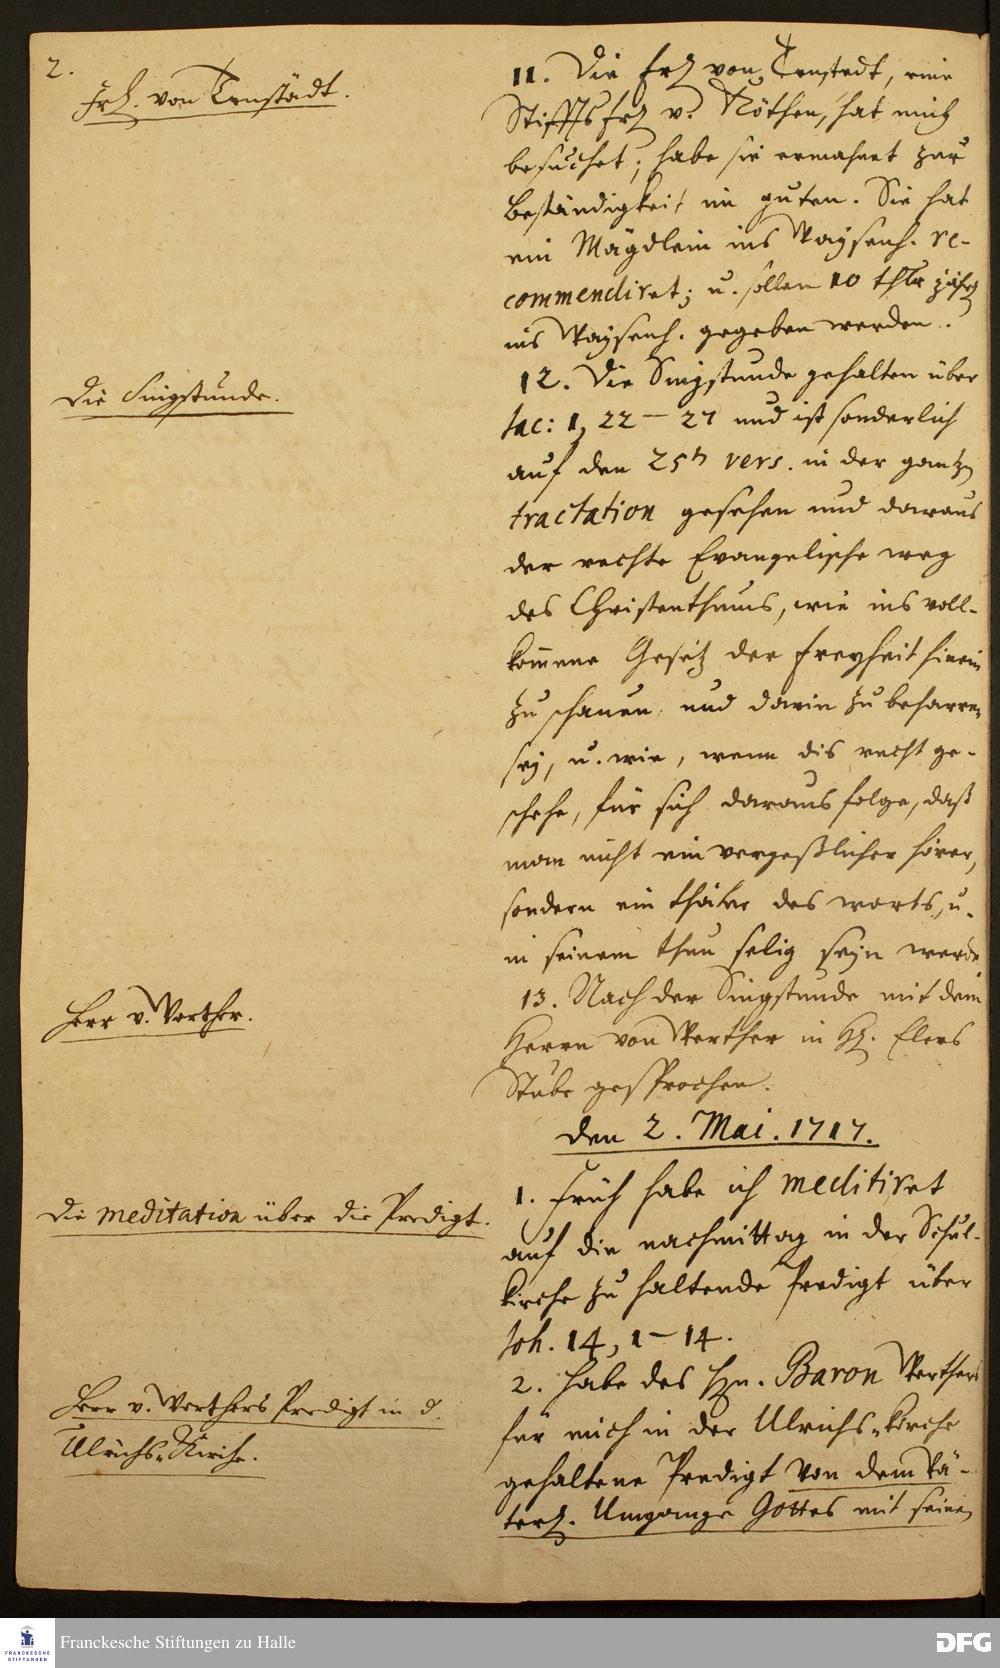 2.
Frl. von Tenstädt.
11. Die Frl von Tenstedt, eine
Stifftsfrl v. Köthen, hat mich
besuchet; habe sie ermahnet zur
Beständigkeit im guten. Sie hat
ein Mägdlein ins Waysenh. re-
commendiret; u. sollen 10 thlr jährl
ins Waysenh. gegeben werden.
Die Singstunde.
12. Die Singstunde gehalten über
Jac: 1, 22 – 27 und ist sonderlich
auf den 25ten vers. in der gantzen
tractation gesehen und daraus
der rechte Evangelische weg
des Christenthums, wie ins voll-
kommene Gesetz der Freyheit hinein
zu schauen, und darin zu beharren
sey, u. wie, wenn dis recht ge-
schehe, für sich daraus folge, daß
man nicht ein vergeßlicher hörer,
sondern ein thäter des worts, u.
in seinem thun selig seyn werde
Herr v. Werther.
13. Nach der Singstunde mit dem
Herrn von Werther in H. Elers
Stube gesprochen.
den 2. Mai. 1717.
Die meditation über die Predigt.
1. Früh habe ich meditiret
auf die nachmittag in der Schul-
kirche zu haltende Predigt über
Joh. 14, 1 – 14.
Herr v. Werthers Predigt in d.
Ulrichs-Kirche.
2. habe des Hn. Baron Werthers
für mich in der Ulrichs-kirche
gehaltene Predigt von dem Vä-
terl. Umgange Gottes mit seinen
FRANCKESCHE STIFTUNGEN
Franckesche Stiftungen zu Halle
DFG